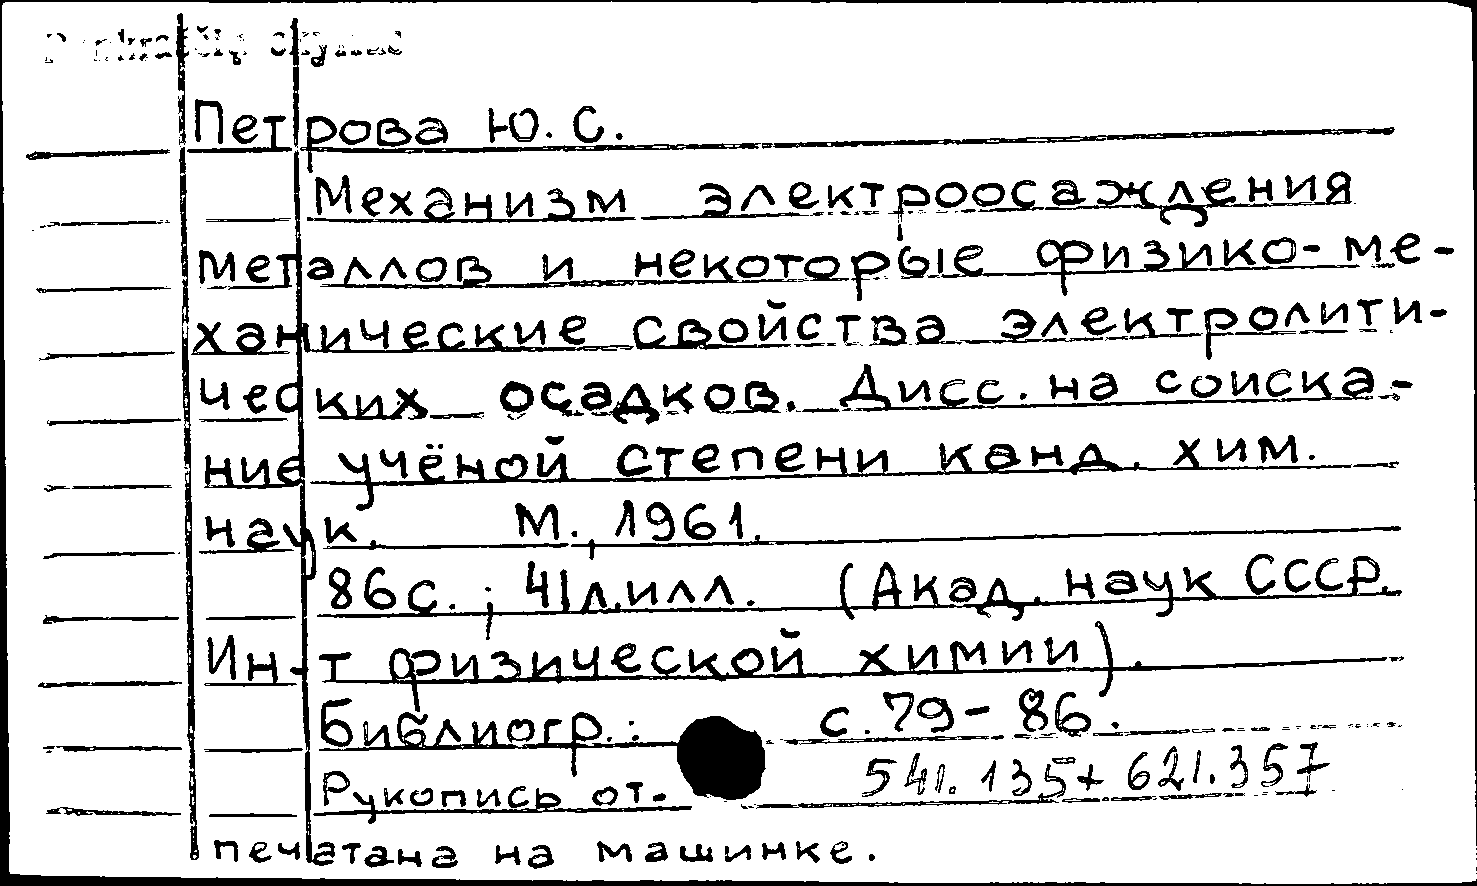 Петрова Ю. С.
Механизм электроосаждения
металлов и некоторые физико-ме-
ханические свойства электролити-
ческих осадков. Дисс. на соиска-
ние учёной степени канд. хим.
наук. М., 1961.
86с.; 41л.илл. (Акад. наук СССР.
Ин-т физической химии).
Библиогр.: с. 79-86.
Рукопись от- 541.135+621.357
печатана на машинке.